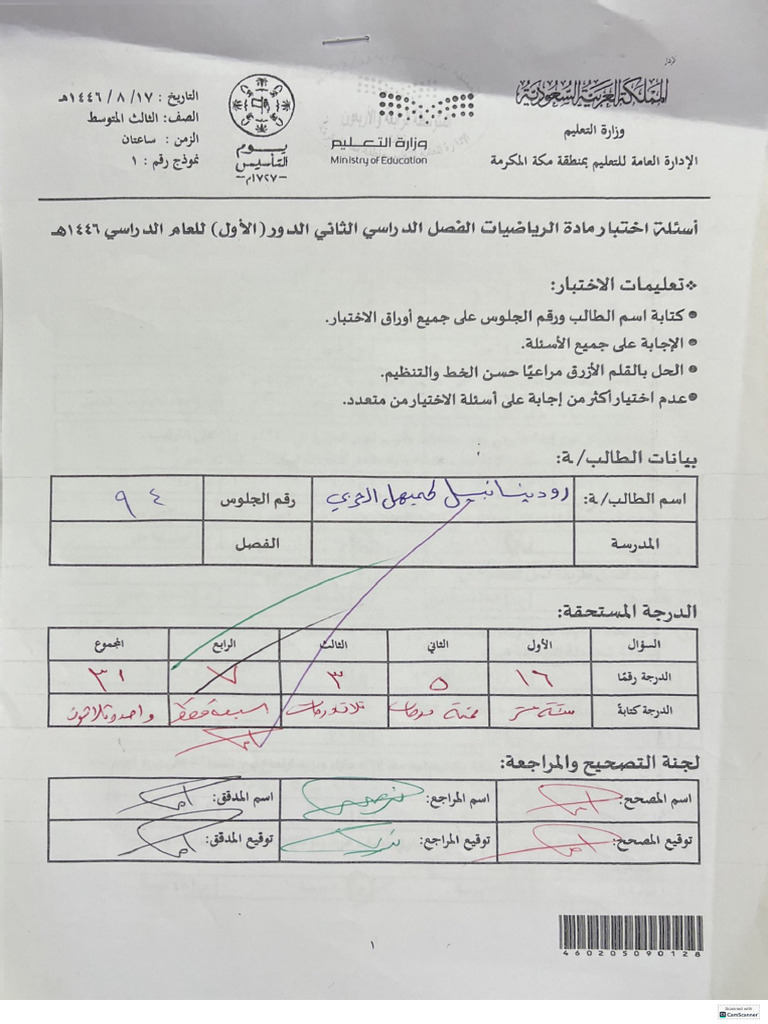 المملكة العربية السعودية
وزارة التعليم
الإدارة العامة للتعليم بمنطقة مكة المكرمة
وزارة التعليم
Ministry of Education
يوم
التأسيس
١٧٢٧م
التاريخ : ١٧/ ٨ / ١٤٤٦هـ
الصف: الثالث المتوسط
الزمن : ساعتان
نموذج رقم : ١
أسئلة اختبار مادة الرياضيات الفصل الدراسي الثاني الدور (الأول) للعام الدراسي ١٤٤٦هـ
❖ تعليمات الاختبار:
● كتابة اسم الطالب ورقم الجلوس على جميع أوراق الاختبار.
● الإجابة على جميع الأسئلة.
● الحل بالقلم الأزرق مراعيًا حسن الخط والتنظيم.
● عدم اختيار أكثر من إجابة على أسئلة الاختيار من متعدد.
بيانات الطالب/ ـة:
اسم الطالب/ ة: الحربي رقم الجلوس ٩٤
المدرسة الفصل
الدرجة المستحقة:
السؤال الأول الثاني الثالث الرابع المجموع
الدرجة رقمًا ١٦ ٥ ٣ ٧ ٣١
الدرجة كتابةً ستة عشر خمسة درجات ثلاث درجات سبعة فقط واحد وثلاثون
لجنة التصحيح والمراجعة:
اسم المصحح: اسم المراجع: اسم المدقق:
توقيع المصحح: توقيع المراجع: توقيع المدقق:
١
460205090128
Scanned with
CamScanner